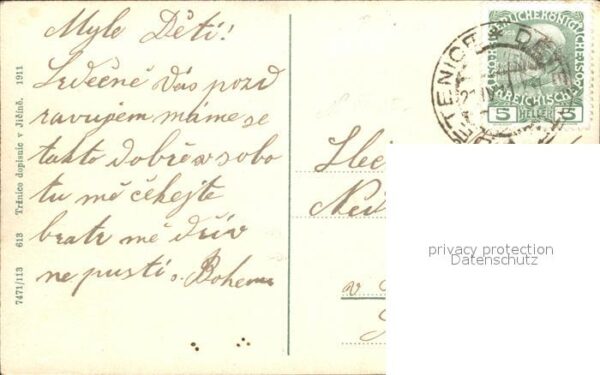 Mylo Děti!
Srdečně Vás pozd
ravujem máme se
tahto dobře v sobo
tu mě čekejte
bratr mě dřív
ne pustí s. Bohem
7471/113 613 Tránico dopisnic v Jičíně. 1911
DĚTENICE * DĚTE
5 HELLER 5
Slec
v
privacy protection
Datenschutz